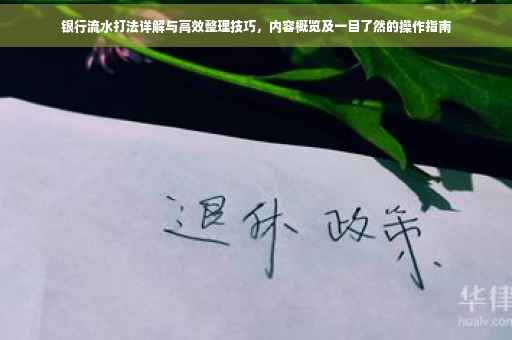 银行流水打法详解与高效整理技巧，内容概览及一目了然的操作指南
退休 政策
华律
hualv.com